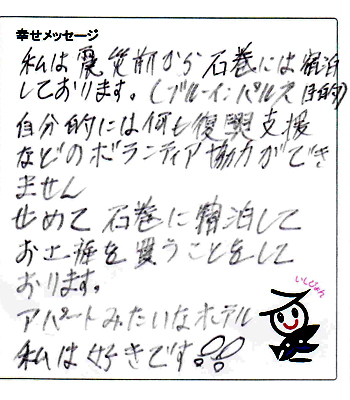 幸せメッセージ
私は震災前から石巻には宿泊
しております。(ブルーインパルス目的)
自分的には何も復興支援
などのボランティア協力ができ
ません
せめて石巻に宿泊して
お土産を買うことをして
おります。
いしぴょん
アパートみたいなホテル
私は好きです!!